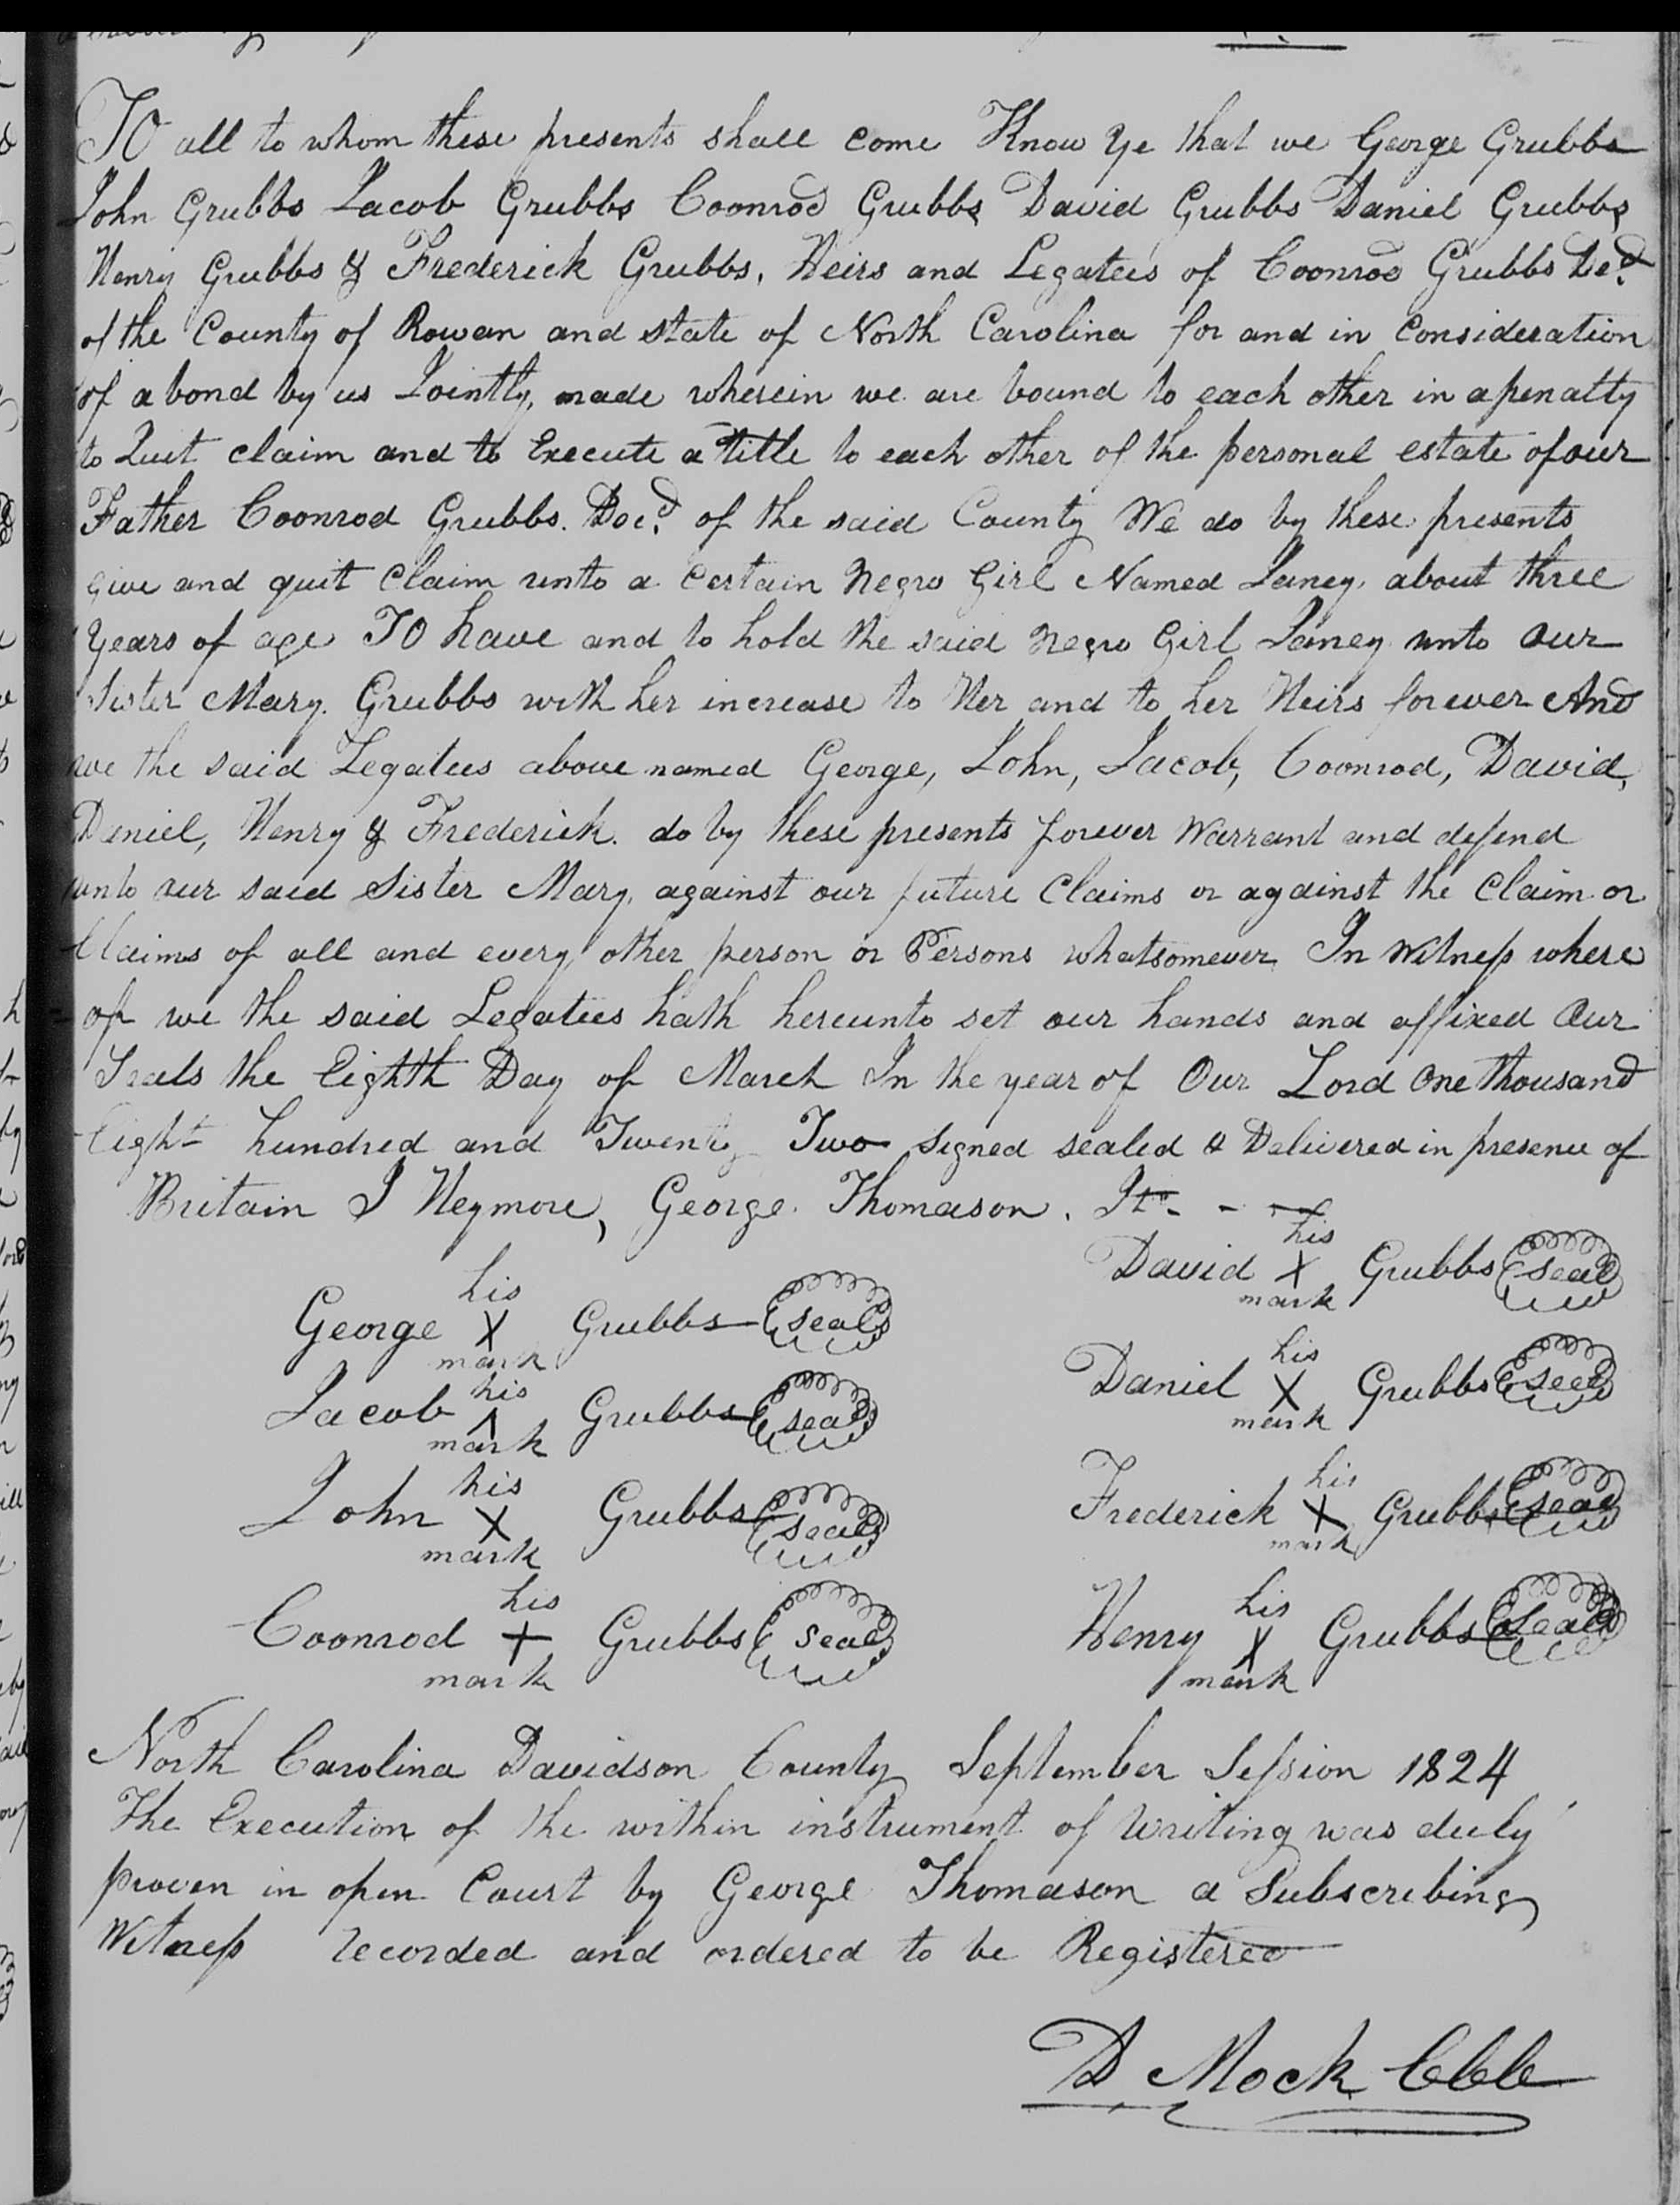 TO all to whom these presents shall come Know Ye that we George Grubbs
John Grubbs Jacob Grubbs Coonrod Grubbs David Grubbs Daniel Grubbs
Henry Grubbs & Frederick Grubbs, Heirs and Legatees of Coonrod Grubbs Decd.
of the County of Rowan and state of North Carolina for and in Consideration
of a bond by us Jointly, made wherein we are bound to each other in a penalty
to Quit claim and to Execute a title to each other of the personal estate of our
Father Coonrod Grubbs. Decd. of the said County We do by these presents
give and quit Claim unto a Certain Negro Girl Named Laney about three
Years of age TO have and to hold the said Negro Girl Laney unto Our
Sister Mary. Grubbs with her increase to Her and to her Heirs forever And
we the said Legatees above named George, John, Jacob, Coonrod, David,
Daniel, Henry & Frederick. do by these presents forever Warrant and defend
unto our said Sister Mary, against our future Claims or against the Claim or
Claims of all and every other person or Persons whatsomever In Witness where
= of we the said Legatees hath hereunto set our hands and affixed Our
Seals the Eighth Day of March In the year of Our Lord One thousand
Eight hundred and Twenty Two signed sealed & Delivered in presence of
Britain I Neymore, George Thomason.
his
David X Grubbs seal
mark
his
George X Grubbs seal
mark
his
Daniel X Grubbs seal
mark
his
Jacob X Grubbs seal
mark
his
Frederick X Grubbs seal
mark
his
John X Grubbs seal
mark
his
Coonrod + Grubbs seal
mark
his
Henry X Grubbs seal
mark
North Carolina Davidson County September Session 1824
The Execution of the within instrument of Writing was duly
proven in open Court by George Thomason a Subscribing
Witness recorded and ordered to be Registered
D Mock CCC